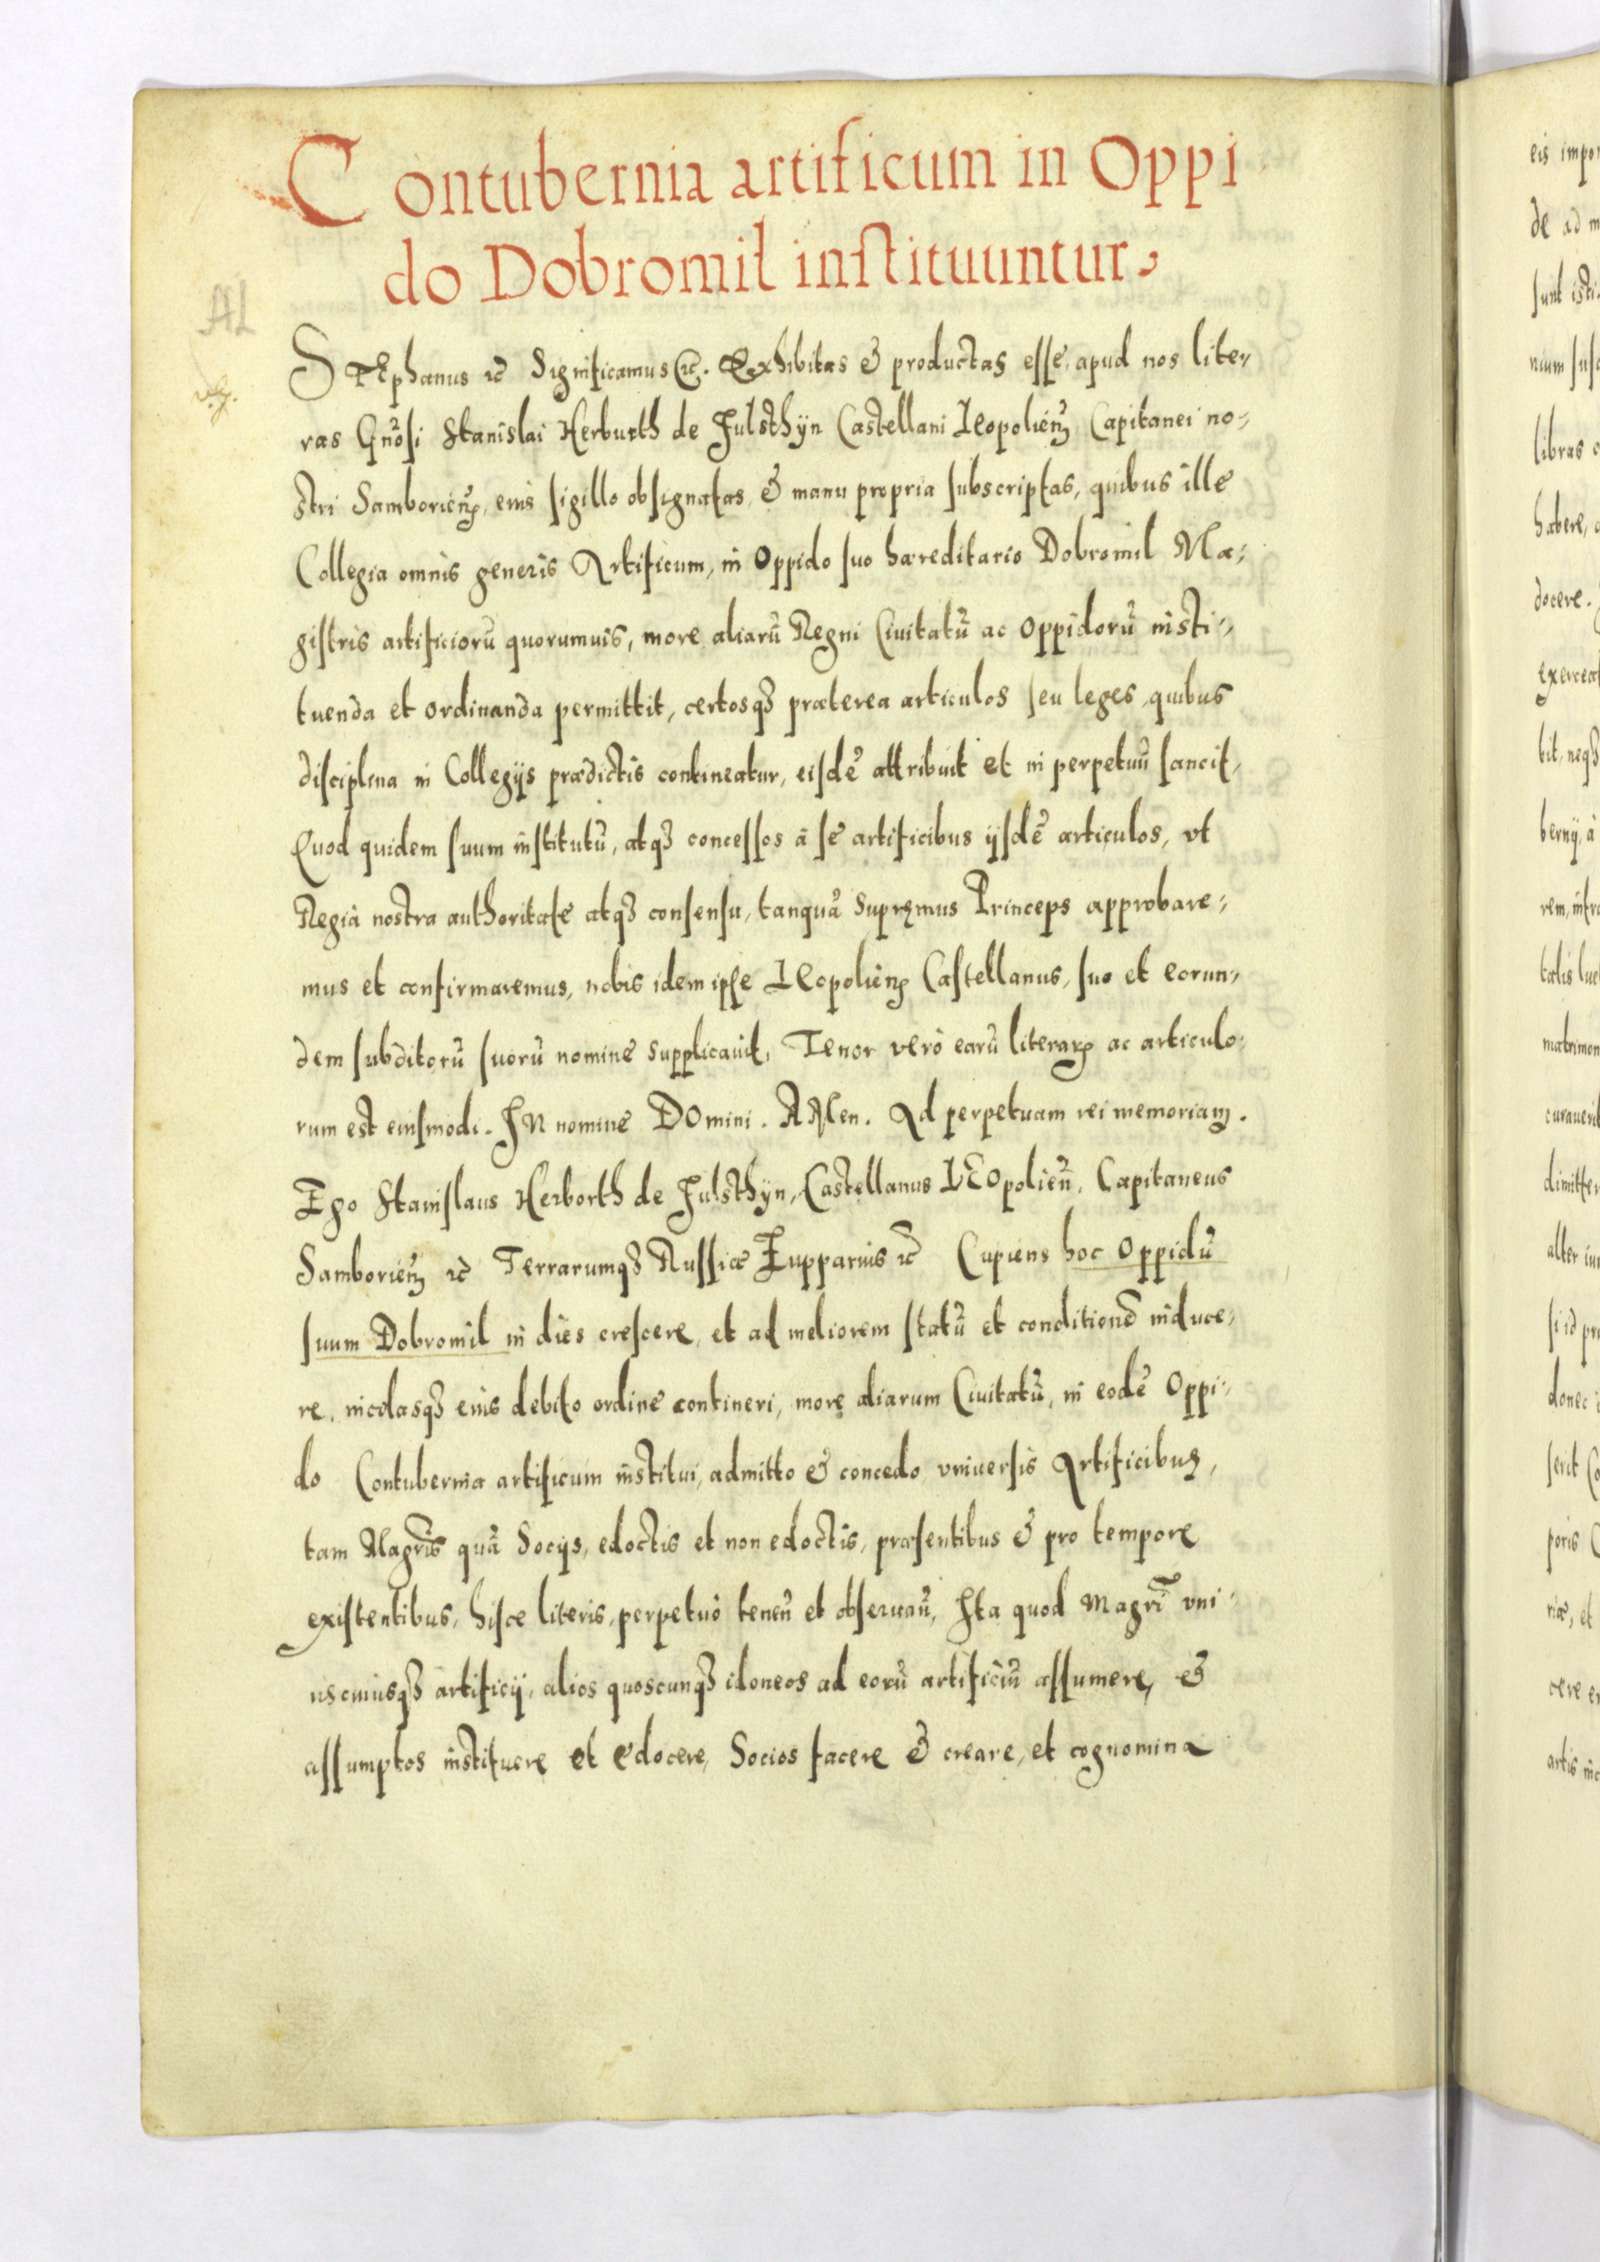 Contubernia artificum in Oppi
do Dobromil instituuntur.
AL
STEphanus etc Significamus etc. Exhibitas & productas esse, apud nos lite-
ras Gnōsi Stanislai Herburth de Fulsthÿn Castellani LEopolien̄ Capitanei no-
stri Samborien̄, eius sigillo obsignatas, & manu propria subscriptas, quibus ille
Collegia omnis generis Artificum, in Oppido suo hæreditario Dobromil Ma-
gistris artificiorū quorumuis, more aliarū Regni Ciuitatū ac Oppidorū insti-
tuenda et ordinanda permittit, certosqȝ præterea articulos seu leges, quibus
disciplina in Collegijs prædictis contineatur, eisdē attribuit et in perpetuū sancit,
Quod quidem suum institutū, atqȝ concessos à se artificibus ijsdē articulos, vt
Regia nostra authoritate atqȝ consensu, tanquā Supremus Princeps approbare-
mus et confirmaremus, nobis idem ipse LEopolien̄ Castellanus, suo et eorun-
dem subditorū suorū nomine supplicauit, Tenor verò earū literarꝝ ac articulo-
rum est eiusmodi. IN nomine DOmini. AMen. Ad perpetuam rei memoriam.
Ego Stanislaus Herborth de Fulsthÿn, Castellanus LEOpolien̄, Capitaneus
Samborien̄ etc Terrarumqȝ Russiæ Zupparius etc Cupiens hoc Oppidū
suum Dobromil in dies crescere, et ad meliorem statū et conditionē induce-
re, incolasqȝ eius debito ordine contineri, more aliarum Ciuitatū, in eodē Oppi-
do Contubernia artificum institui, admitto & concedo vniuersis Artificibus,
tam Magr̄is quā Socijs, edoctis et non edoctis, præsentibus & pro tempore
existentibus, hisce literis, perpetuò tenen̄ et obseruan̄, Ita quod Magr̄i vni-
uscuiusqȝ artificij, alios quoscunqȝ idoneos ad eorū artificiū assumere, &
assumptos instituere et edocere, Socios facere & creare, et cognomina